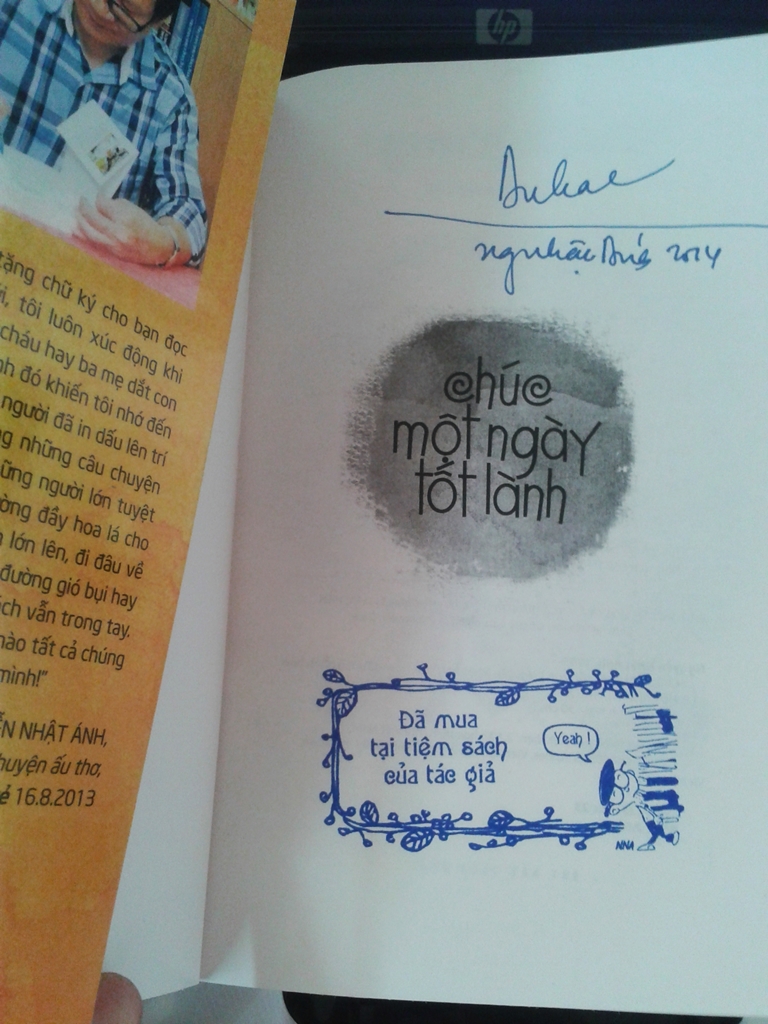 hp
tặng chữ ký cho bạn đọc
tôi luôn xúc động khi
cháu hay ba mẹ dắt con
đó khiến tôi nhớ đến
người đã in dấu lên trí
những câu chuyện
người lớn tuyệt
đầy hoa lá cho
lớn lên, đi đâu về
đường gió bụi hay
vẫn trong tay.
tất cả chúng
mình!"
NHẬT ÁNH,
ấu thơ,
16.8.2013
2014
chúc
một ngày
tốt lành
Đã mua
tại tiệm sách
của tác giả
Yeah !
NNA